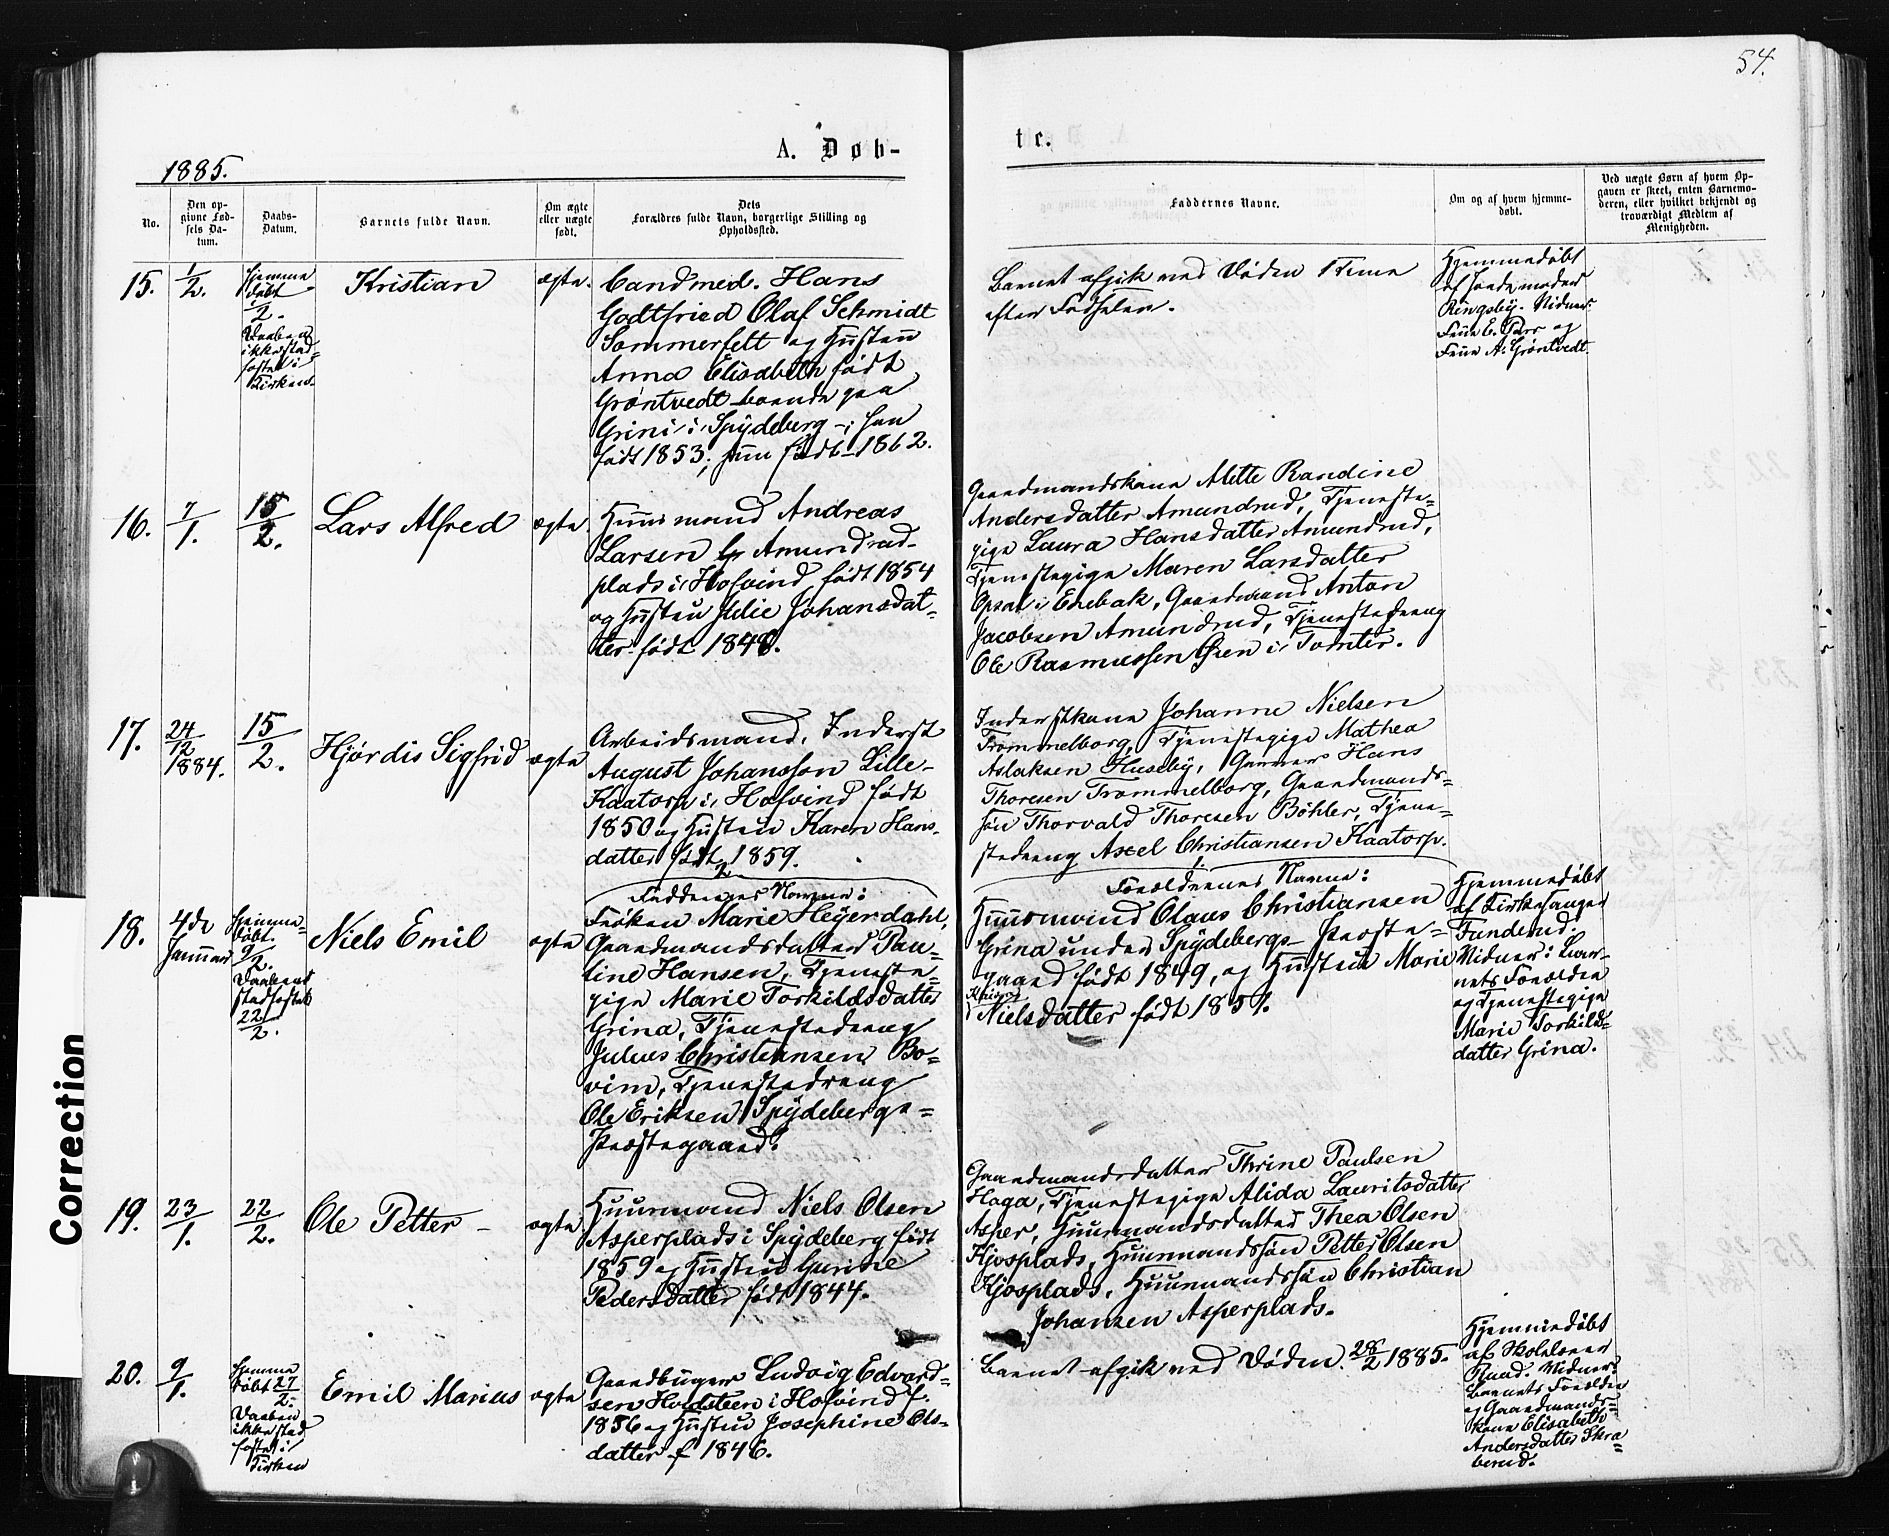 54.
A. Døb-
te.
1885.
No.
Den op-
givne Fød-
sels Da-
tum.
Daabs-
Datum.
Barnets fulde Navn.
Om ægte
eller uægte
født.
Dets
Forældres fulde Navn, borgerlige Stilling og
Opholdssted.
Faddernes Navne.
Om og af hvem hjemme-
døbt.
Ved uægte Børn af hvem Op-
gaven er skeet, enten Barnemo-
deren, eller hvilket bekjendt og
troværdigt Medlem af
Menigheden.
15.
1/2.
Hjemme
døbt
1/2.
Daaben
ikke stad-
fæstet i
Kirken.
Kristian
ægte.
Cand. med. Hans
Godtfried Olaf Schmidt
Sommerfelt og Hustru
Anna Elisabeth født
Grøntvedt boende paa
Grini i Spydeberg -; han
født 1853; hun født 1862.
Barnet afgik ved Døden 1 Time
efter Fødselen.
Hjemmedøbt
af Jordemoder
Ringsby. Vidner
Frue E. og
Frue A. Grøntvedt.
16.
7/1.
15/2.
Lars Alfred
ægte.
Huusmand Andreas
Larsen Amundrud-
plads i Hofvind født 1854
og Hustru Julie Johansdat-
ter født 1848.
Gaardmandskone Mette Randine
Andersdatter Amundrud, Tjeneste-
pige Laura Hansdatter Amundrud,
Tjenestepige Maren Larsdatter
Opsal i Enebak, Gaardmand Anton
Jacobsen Amundrud, Tjenestedreng
Ole Rasmussen Gren i Tomter.
17.
24/12
1884.
15/2.
Hjørdis Sigfrid
ægte
Arbeidsmand, Inderst
August Johansson Lille-
Kaatorp i Hofvind født
1850 og Hustru Karen Hans-
datter født 1859.
Inderstkone Johanne Nielsen
Trommelborg, Tjenestepige Mathea
Aslaksen Huseby, Hans
Thoresen Trommelborg, Gaardmands-
søn Thorvald Thoresen Bøhler, Tjene-
stedreng Axel Christiansen Kaatorp.
18.
4de
Januar
Hjemme-
døbt
9/2.
Daaben
stadfæstet
22/2.
Niels Emil
ægte
2
Faddernes Navne:
Frøken Marie Heyerdahl,
Gaardmandsdatter Pau-
line Hansen, Tjeneste-
pige Marie Torkildsdatter
Grina, Tjenestedreng
Julius Christiansen Bo-
vim, Tjenestedreng
Ole Eriksen Spydebergs-
Præstegaard.
1
Forældrenes Navne:
Huusmand Olaus Christiansen
Grina under Spydebergs Præste-
gaard født 1849, og Hustru Marie
Nielsdatter født 1857.
Hjemmedøbt
af Kirkesanger
Funderud.
Vidner: Bar-
nets Forældre
og Tjenestepige
Marie Torkilds-
datter Grina.
19.
23/1.
22/2.
Ole Petter -
ægte
Huusmand Niels Olsen
Asperplads i Spydeberg født
1859 og Hustru Gurine
Pedersdatter født 1844.
Gaardmandsdatter Thrine Paulsen
Haga, Tjenestepige Alida Lauritsdatter
Asper, Huusmandsdatter Thea Olsen
Kjosplads, Huusmandssøn Petter Olsen
Kjosplads, Huusmandssøn Christian
Johansen Asperplads.
20.
9/1.
Hjemme
døbt 27/2.
Daaben
ikke stad
fæstet i
Kirken
Emil Marius
ægte
Gaardbruger Ludvig Edvard-
sen Holdsteen i Hofvind f.
1856 og Hustru Josephine Ols-
datter f 1846.
Barnet afgik ved Døden 28/2 1885.
Hjemmedøbt
af Skolelærer
Ruud. Vidner:
Barnets Forældre
og Gaardmands-
kone Elisabeth
Andersdatter Skra-
berud.
Correction